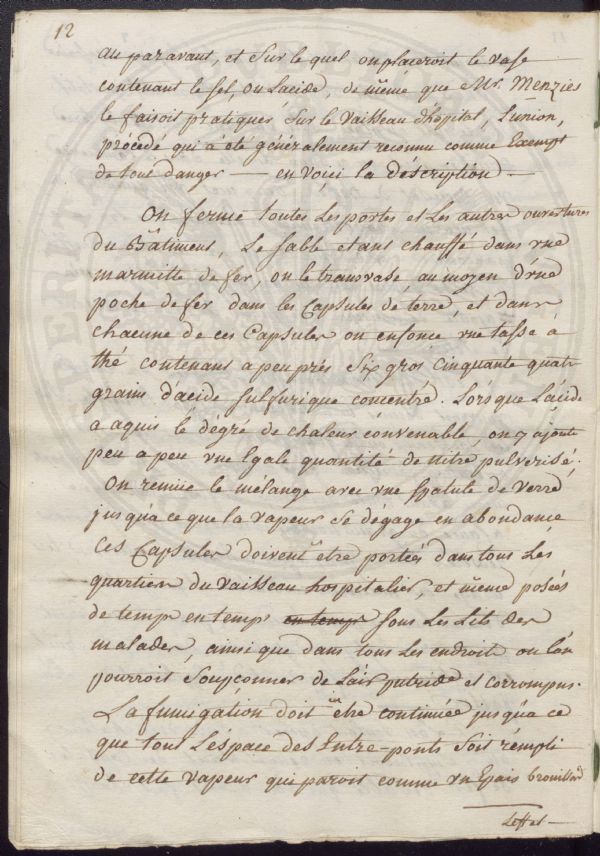 12
au paravant, et sur le quel on placeroit le vase
contenant le sel, ou l'acide, de même que Mr. Menzies
le faisoit pratiquer sur le Vaisseau d'hôpital, l'union,
procédé qui a été généralement reconnu comme Exempt
de tout danger — en voiçi la déscription —
On ferme toutes Les portes et Les autres ouvertures
du Bâtiment, Le sable etant chauffé dans une
marmitte de fer, on le transvase au moyen d'une
poche de fer dans les Capsules de terre, et dans
chacune de ces Capsules on enfonce une tasse à
thé contenant apeuprés Six gros cinquante quatr
grains d'acide sulfurique concentré. Lorsque L'acide
a aquis le dégré de chaleur convenable, on y ajoute
peu a peu une Egale quantité de nitre pulverisé,
On remüe le mélange avec une spatule de verre
jusqu'a ce que la vapeur se dégage en abondance
Ces Capsules doivent etre portées dans tous Les
quartiers du vaisseau hospitalier, et même posées
de temp en temps en temps sous Les Lits des
malades, ainsi que dans tous Les endroits ou L'on
pourroit soupçonner de L'air putride et corrompus.
La fumigation doit etre continuée jusqu'a ce
que tout L'éspace des Entre-ponts soit rempli
de cette vapeur qui paroit comme un Epais brouillard
Leffet —